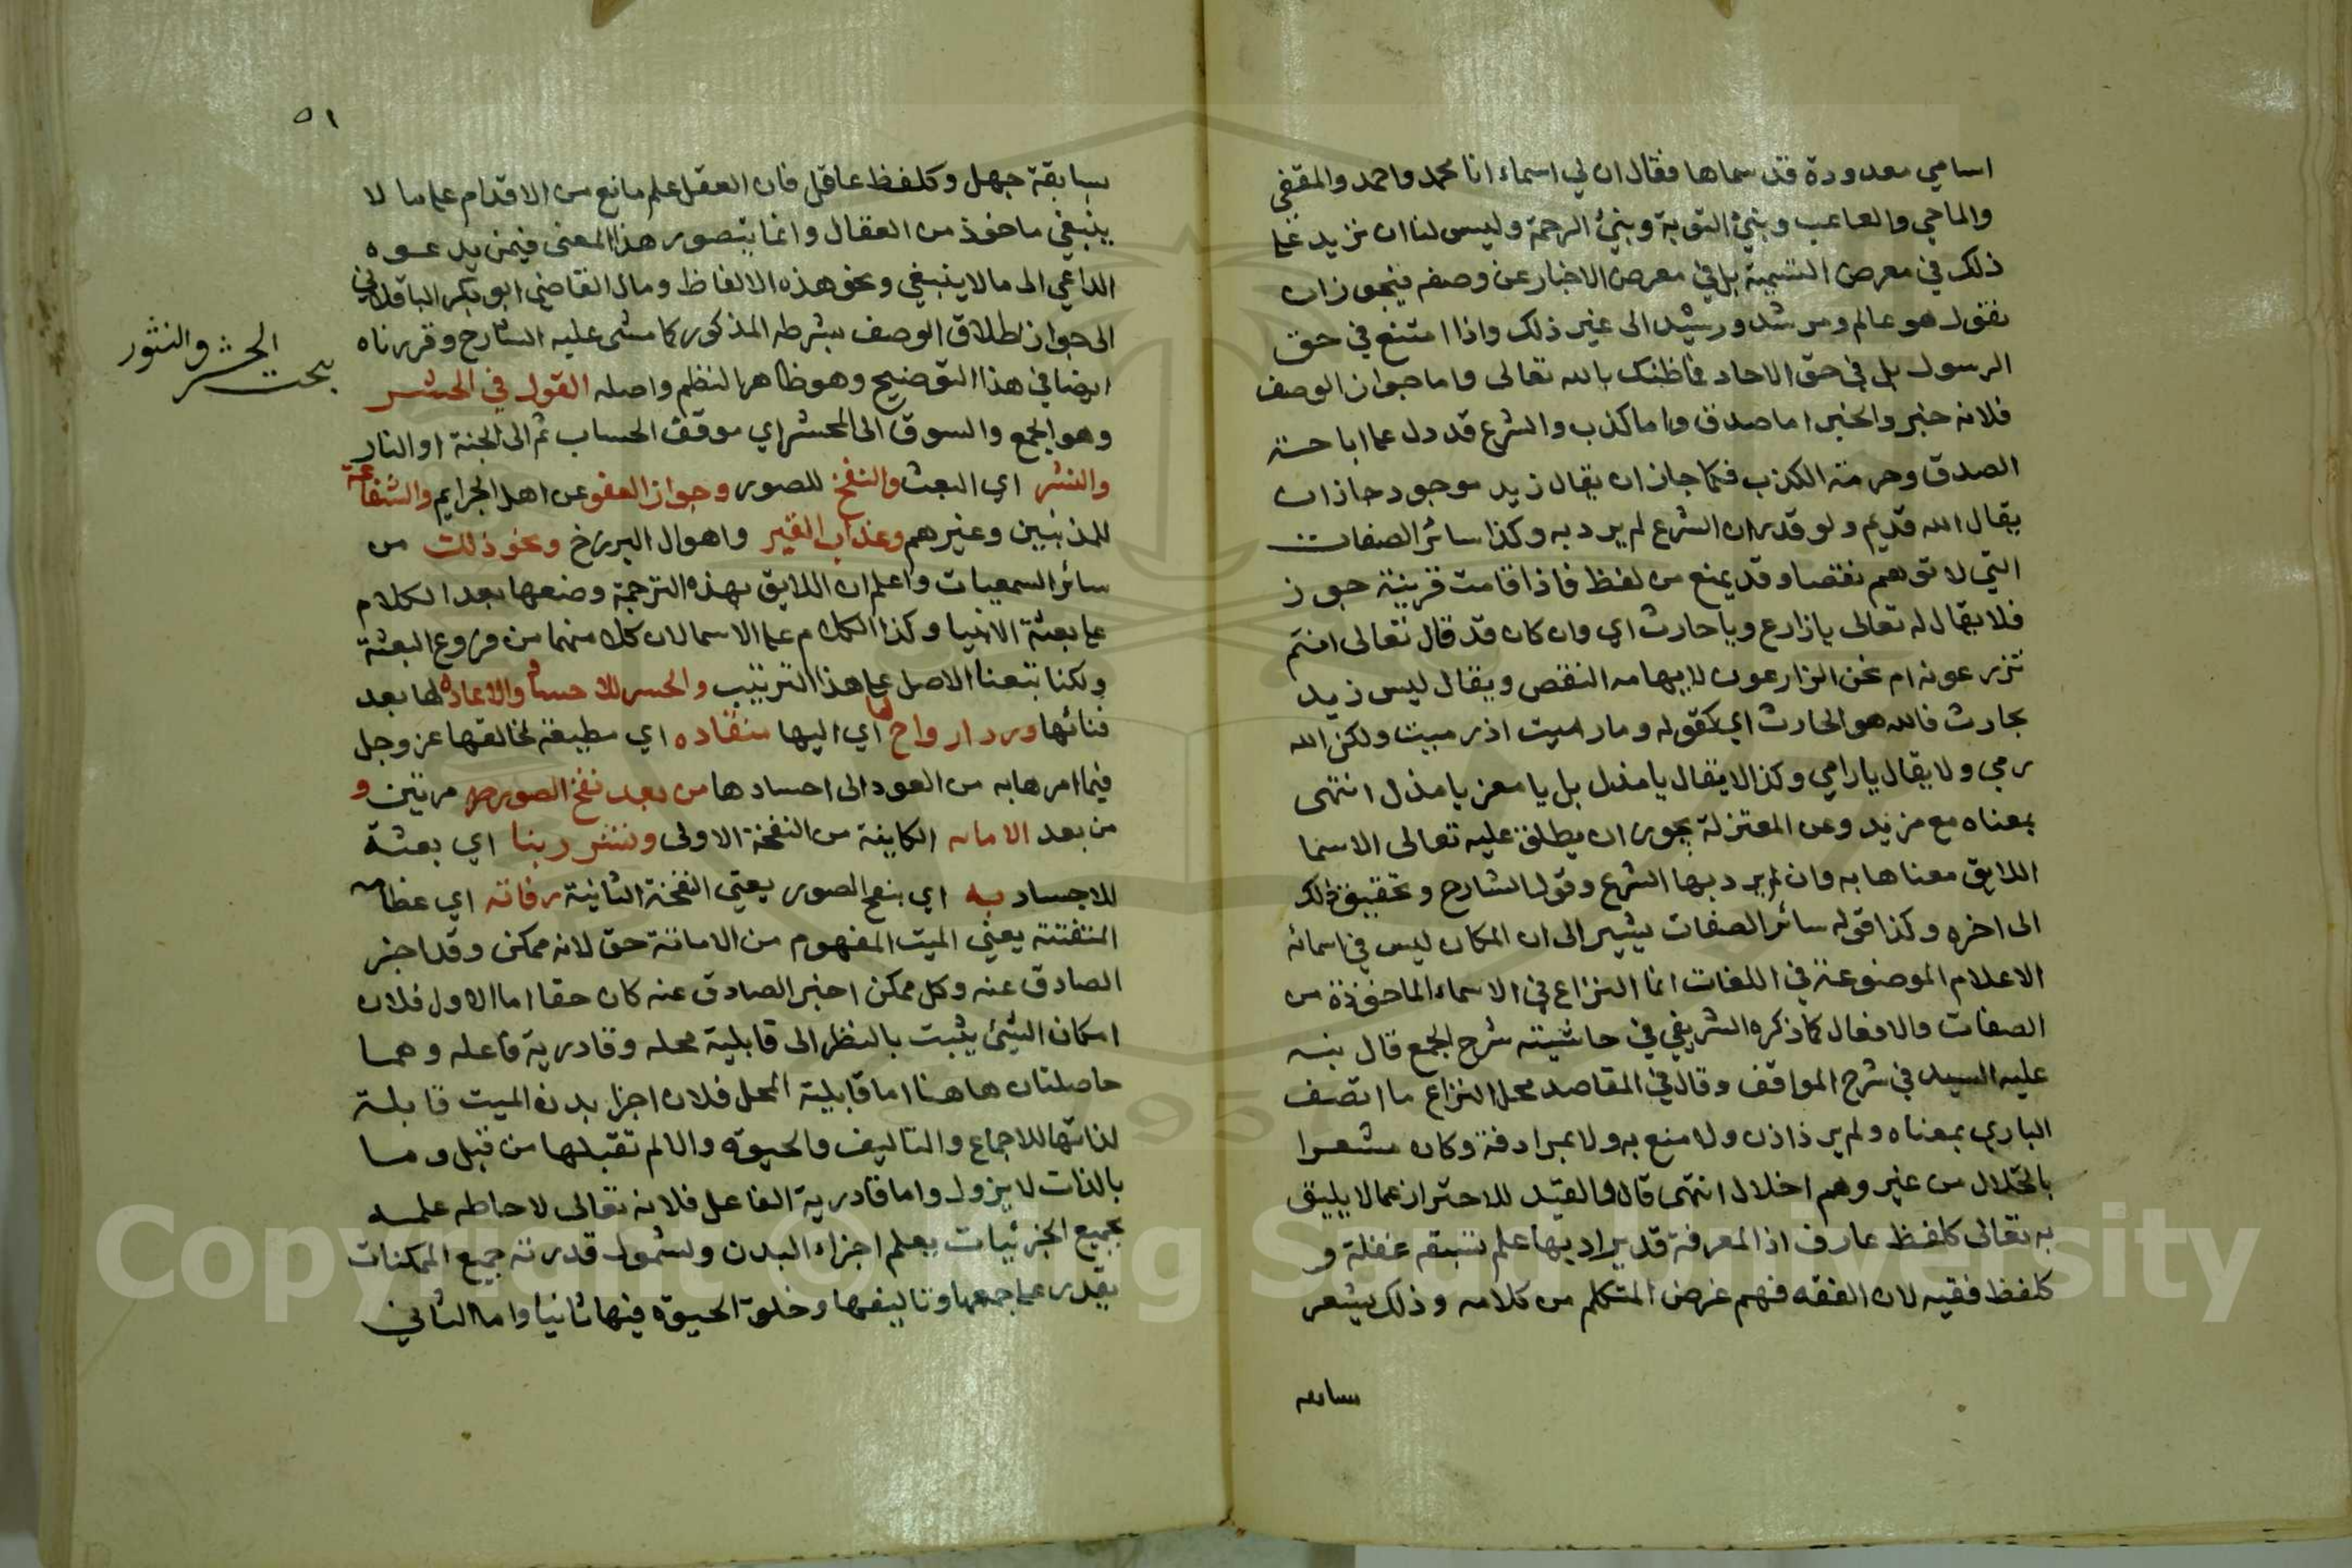 اسامي معدودة قد سماها فقال ان لي اسماء انا محمد واحمد والمقفي
والماحي والعاقب ونبي التوبة ونبي الرحمة وليس لنا ان نزيد على
ذلك في معرض التسمية بل في معرض الاخبار عن وصفه فيجوز ان
نقول هو عالم ومرشد ورشيد الى غير ذلك واذا امتنع في حق
الرسول بل في حق الاحاد فما ظنك بالله تعالى واما جواز الوصف
فلانه خبر والخبر اما صدق واما كذب والشرع قد دل على اباحة
الصدق وحرمة الكذب فكما جاز ان يقال زيد موجود جاز ان
يقال الله قديم ولو قدر ان الشرع لم يرد به وكذا سائر الصفات
التي لا توهم نقصا وقد يمنع من لفظ فاذا قامت قرينة جوز
فلا يقال له تعالى يا زارع ويا حارث اي وان كان قد قال تعالى انتم
تزرعونه ام نحن الزارعون لايهامه النقص ويقال ليس زيد
بحارث فالله هو الحارث اي كقوله وما رميت اذ رميت ولكن الله
رمى ولا يقال يا رامي وكذا لا يقال يا مذل بل يا معز يا مذل انتهى
بمعناه مع مزيد وعن المعتزلة يجوز ان يطلق عليه تعالى الاسما
اللايق معناها به وان لم يرد بها الشرع وقول الشارح وتحقيق ذلك
الى اخره وكذا قوله سائر الصفات يشير الى ان المكان ليس في اسمائه
الاعلام الموضوعة في اللغات انما النزاع في الاسماء الماخوذة من
الصفات والافعال كما ذكره الشريفي في حاشيته شرح الجمع قال نبه
عليه السيد في شرح المواقف وقال في المقاصد محل النزاع ما اتصف
الباري بمعناه ولم يرد اذن ولا منع به ولا بمرادفة وكان مشعرا
بالجلال من غير وهم اخلال انتهى قال فالقيد للاحتراز عما لا يليق
به تعالى كلفظ عارف اذ المعرفة قد يراد بها علم تسبقه غفلة و
كلفظ فقيه لان الفقه فهم غرض المتكلم من كلامه وذلك يشعر
سابقة
٥١
بسابقة جهل وكلفظ عاقل فان العقل علم مانع من الاقدام على ما لا
ينبغي ماخوذ من العقال وانما يتصور هذا المعنى فيمن يدعوه
الداعي الى ما لا ينبغي ونحو هذه الالفاظ ومال القاضي ابو بكر الباقلاني
الى جواز اطلاق الوصف بشرطه المذكور كما مشى عليه الشارح وقررناه
ايضا في هذا التوضيح وهو ظاهر النظم واصله القول في الحشر
بحث الحشر والنشور
وهو الجمع والسوق الى المحشر اي موقف الحساب ثم الى الجنة او النار
والنشر اي البعث والنفخ للصور وجواز العفو عن اهل الجرايم والشفاعة
للمذنبين وغيرهم وعذاب القبر واهوال البرزخ ونحو ذلك من
سائر السمعيات واعلم ان اللايق بهذه الترجمة وضعها بعد الكلام
على بعثة الانبيا وكذا الكلام على الاسما لان كلا منهما من فروع البعثة
ولكنا تبعنا الاصل على هذا الترتيب والحشر للاجساد والاعادة لها بعد
فنائها ورد ارواح لها اي اليها منقاده اي مطيعة لخالقها عز وجل
فيما امرها به من العود الى اجسادها من بعد نفخ الصور مرتين و
من بعد الاماته الكاينة من النفخة الاولى ونشر ربنا اي بعثه
للاجساد به اي بنفخ الصور يعني النفخة الثانية رفاته اي عظامه
المتفتتة يعني الميت المفهوم من الاماتة حق لانه ممكن وقد اخبر
الصادق عنه وكل ممكن اخبر الصادق عنه كان حقا اما الاول فلان
امكان الشيئ يثبت بالنظر الى قابلية محله وقادرية فاعله وهما
حاصلتان هاهنا اما قابلية المحل فلان اجزا بدن الميت قابلة
لذاتها للاجماع والتاليف والحيوة والا لم تقبلها من قبل وما
بالذات لا يزول واما قادرية الفاعل فلانه تعالى لاحاطه علمه
بجميع الجزئيات يعلم اجزاء البدن ولشمول قدرته جميع الممكنات
يقدر على جمعها وتاليفها وخلق الحيوة فيها ثانيا واما الثاني
Copyright © King Saud University